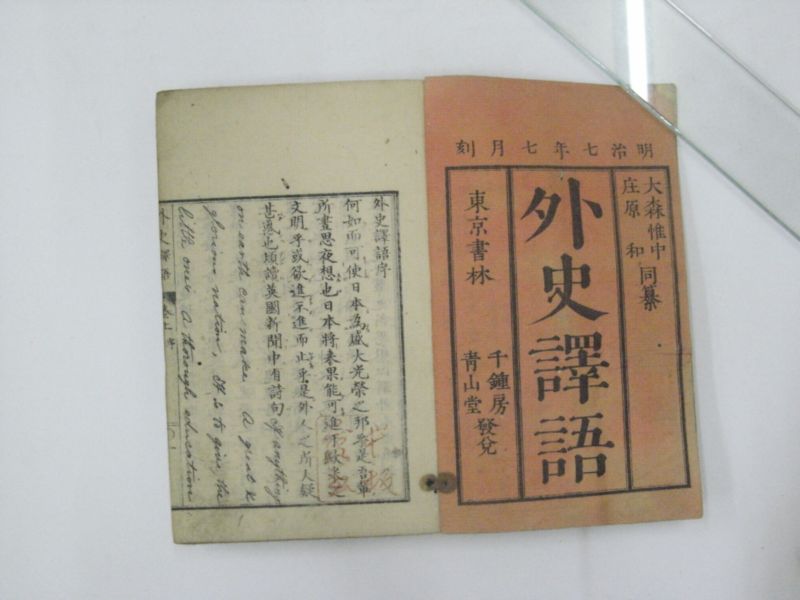 明治七年七月刻
大森惟中
庄原和
同纂
外史譯語
東京書林
千鍾房
青山堂
發兌
外史譯語序
何如而可使日本為盛大光榮之邦乎是吾輩
所晝思夜想也日本將来果能可進于歐米之
文明乎或欲進不進而止乎是外人之所人疑
甚惑也頃讀英國新聞中有詩句 If anything
on earth can make A great &
glorious nation, It is to give the
little ones A thorough education
外史譯語